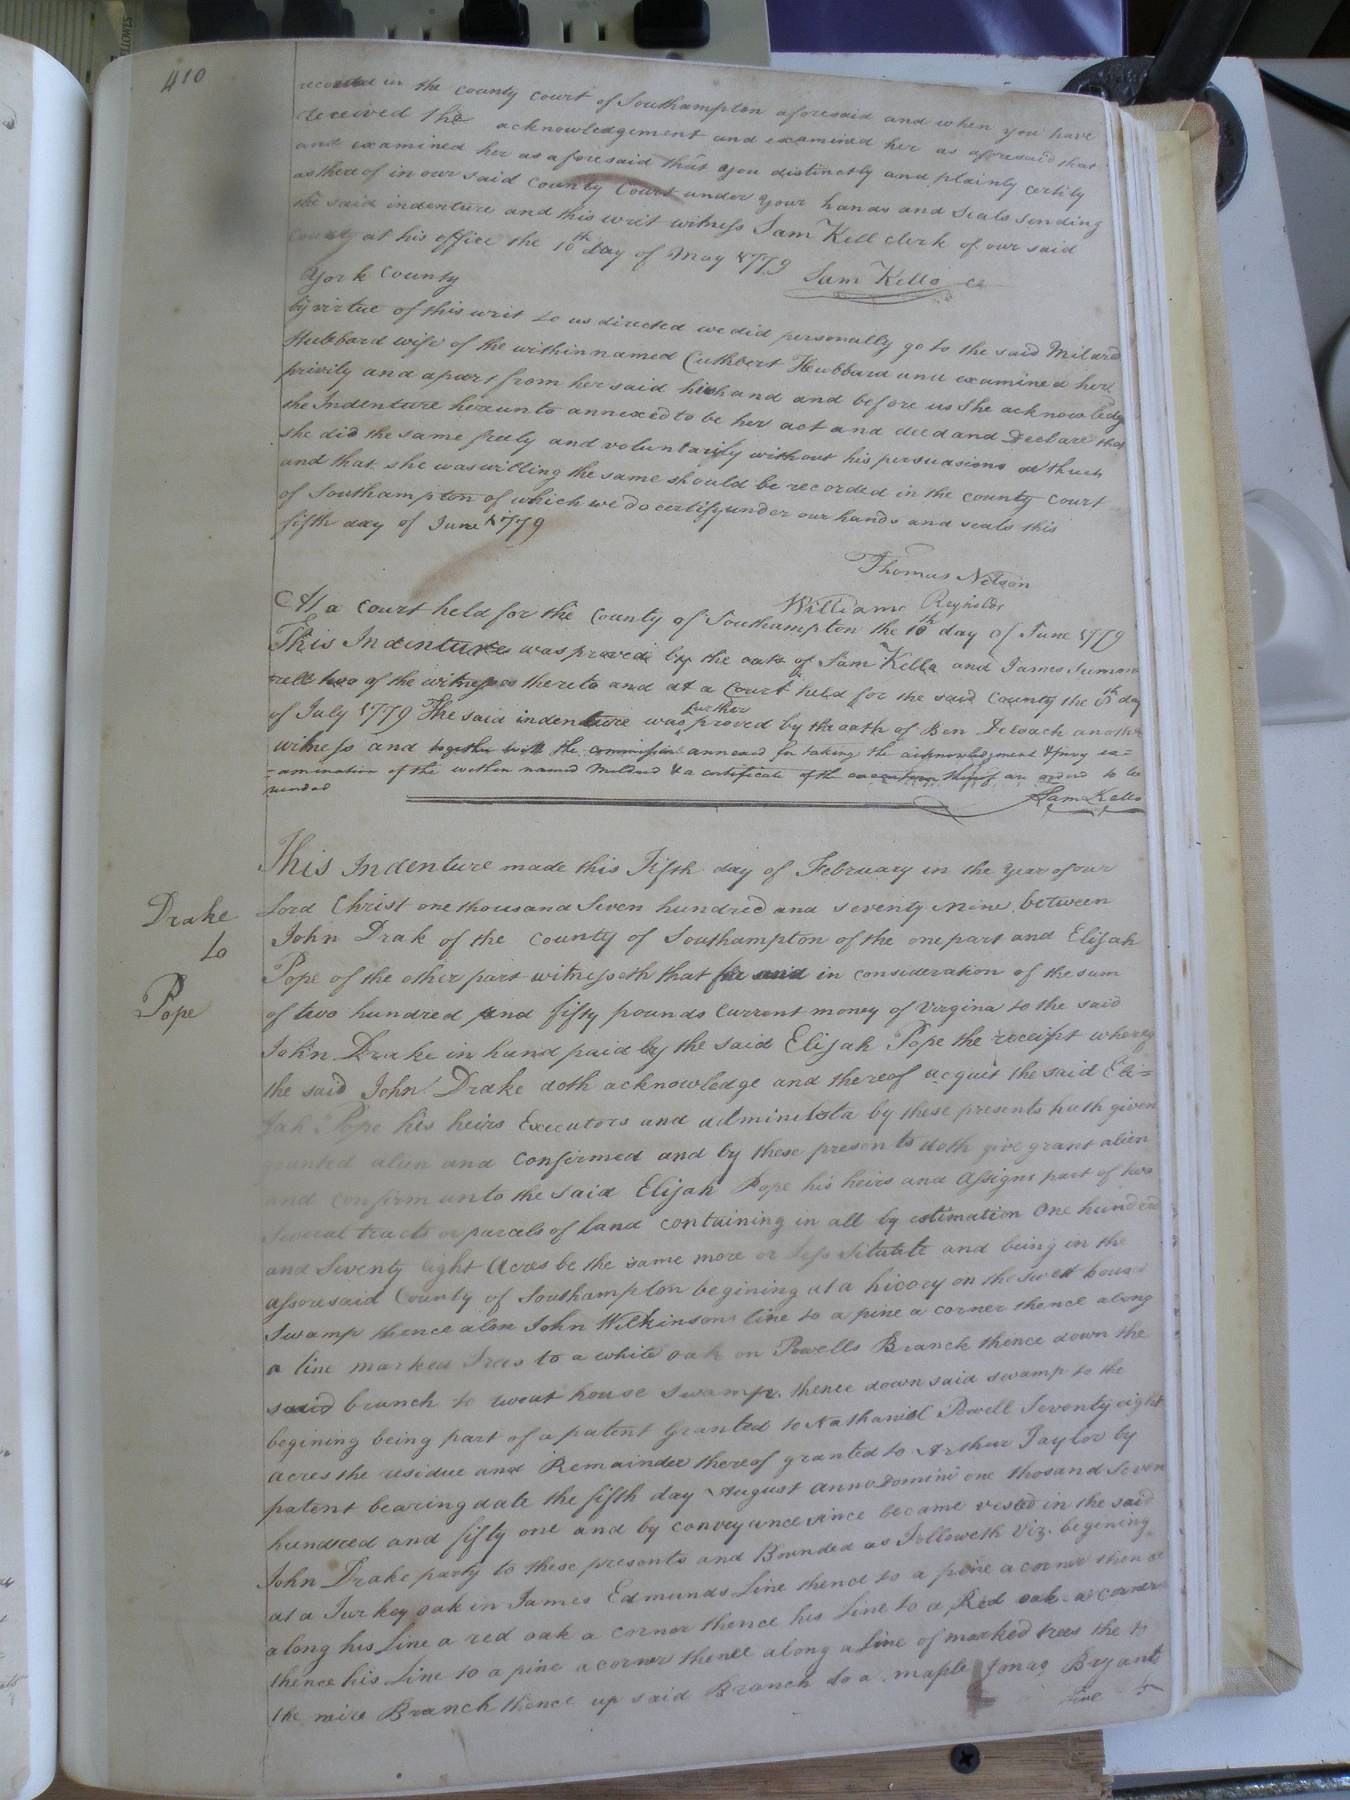 410
recorded in the County Court of Southampton aforesaid and when you have
received the acknowledgement and examined her as aforesaid that
and examined her as aforesaid that you distinctly and plainly certify
as thereof in our said County Court under your hands and Seals Sending
the said indenture and this writ witness Sam Kell clerk of our said
County at his office the 10th day of May 1779 Sam Kello cc
York County
by virtue of this writ to us directed we did personally go to the said Milard
Hubbard wife of the within named Cuthbert Hubbard and examined her
privily and apart from her said husband and before us She acknowledg
the Indenture hereunto annexed to be her act and deed and Declare that
she did the same freely and voluntarily without his persuasions or
and that she was willing the same should be recorded in the county Court
of Southampton of which we do certify under our hands and seals this
fifth day of June 1779
Thomas Nelson
William Reynolds
At a Court held for the County of Southampton the 10th day of June 1779
This Indenture was proved by the oath of Sam Kello and James Summer
rell two of the witnesses thereto and at a Court held for the said County the 8th day
of July 1779 The said indenture was further proved by the oath of Ben Deloach another
witness and together with the commission annexed for taking the acknowledgment & privy ex=
=amination of the within named Mildred & a certificate of the execution thereof are ordered to be
recorded
Sam Kello
This Indenture made this Fifth day of February in the Year of our
Drake
to
Pope
Lord Christ one thousand Seven hundred and seventy Nine between
John Drak of the County of Southampton of the one part and Elijah
Pope of the other part witnesseth that for and in consideration of the sum
of two hundred and fifty pounds Current money of Virgina to the said
John Drake in hand paid by the said Elijah Pope the receipt whereof
the said John Drake doth acknowledge and thereof acquit the said Eli=
jah Pope his heirs Executors and by these presents hath given
granted alien and Confirmed and by these presents doth give grant alien
and confirm unto the said Elijah Pope his heirs and Assigns part of two
several tracts or parcels of land Containing in all by estimation One hundred
and Seventy eight Acres be the same more or Less Situate and being in the
afforesaid County of Southampton begining at a hicory on the Sweet house
Swamp thence alon John Wilkinsons line to a pine a corner thence along
a line marked Trees to a white oak on Powells Branch thence down the
said branch to sweat house swamp. thence down said swamp to the
begining being part of a patent Granted to Nathaniel Powell Seventy eight
acres the residue and Remainder thereof granted to Arthur Taylor by
patent bearing date the fifth day August anno Domini one thosand Seven
hundred and fifty one and by conveyance since became vested in the said
John Drake party to these presents and Bounded as Followeth Viz. begining
at a Turkey oak in James Edmunds Line thence to a pine a corner thence
along his Line a red oak a corner thence his Line to a Red oak a corner
thence his Line to a pine a corner thence along a Line of marked trees the to
the mire Branch thence up said Branch to a maple Jonas Bryants
Line